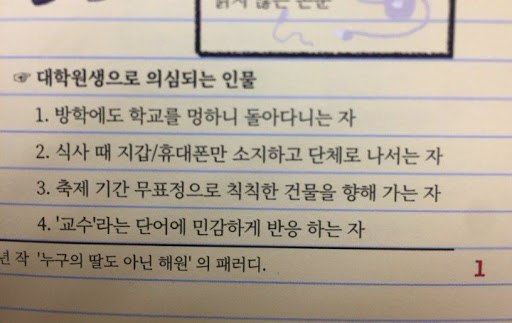 않는 논문
☞ 대학원생으로 의심되는 인물
1. 방학에도 학교를 멍하니 돌아다니는 자
2. 식사 때 지갑/휴대폰만 소지하고 단체로 나서는 자
3. 축제 기간 무표정으로 칙칙한 건물을 향해 가는 자
4. '교수'라는 단어에 민감하게 반응 하는 자
년 작 '누구의 딸도 아닌 해원' 의 패러디.
1